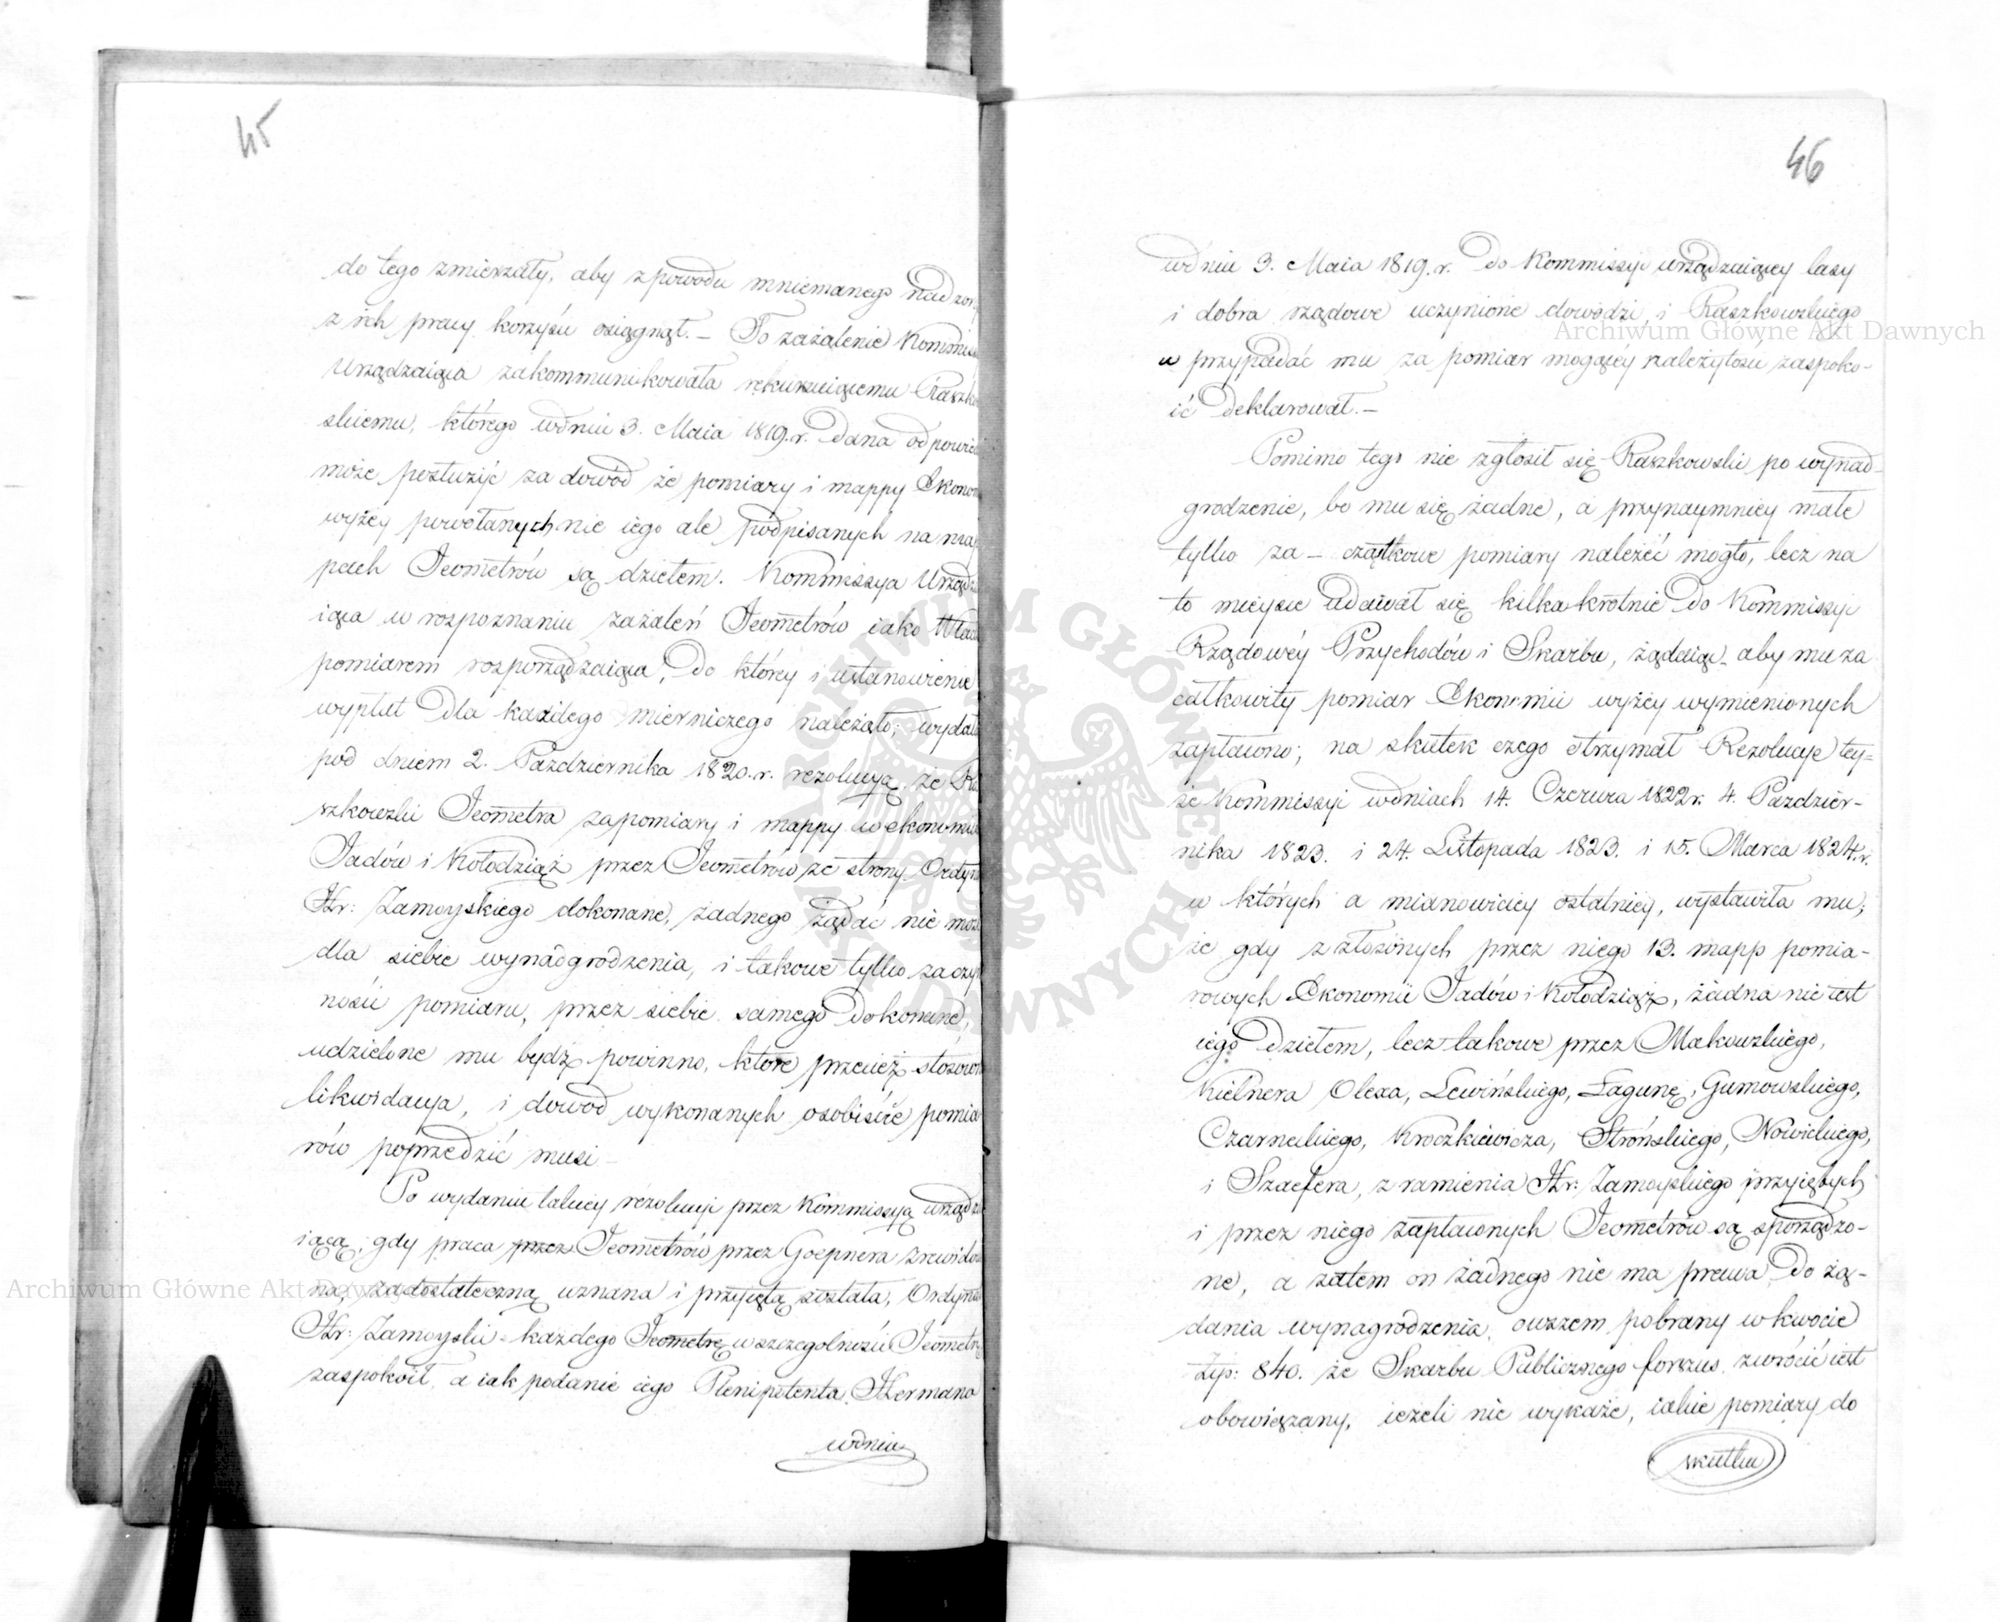 45
do tego zmierzały, aby z powodu mniemanego nadzor
z ich pracy korzyści osiągnął. – To zażalenie Kommis
Urządzaiąca zakommunikowała rekurruiącemu Raszko
skiemu, którego w dniu 3. Maia 1819. r. dana odpowie
może posłużyć za dowód że pomiary i mappy Ekonom
wyżey powołanych nie iego ale podpisanych na ma
pach Jeometrów są dziełem. Kommissya Urządza
iąca w rozpoznaniu zażaleń Jeometrów iako Wład
pomiarem rozporządzaiąca, do którey i ustanowienie
wypłat dla każdego mierniczego należało, wydała
pod dniem 2. Października 1820. r. rezolucyą, że Ra
szkowski Jeometra za pomiary i mappy w ekonomii
Jadów i Kołodziąż przez Jeometrów ze strony Ordyn
Hr: Zamoyskiego dokonane, żadnego żądać nie moż
dla siebie wynadgrodzenia, i takowe tylko za czyn
ności pomiaru, przez siebie samego dokonane,
udzielone mu bydź powinno, które przecież stosown
likwidacya, i dowod wykonanych osobiście pomia
rów poprzedzić musi –
Po wydaniu takiey rezolucyi przez Kommissyą urządza
iącą, gdy praca przez Jeometrów przez Goepnera zrewidow
na, za dostateczną uznana i przyiętą została, Ordynat
Hr: Zamoyski każdego Jeometrę w szczególności Jeometr
zaspokoił, a iak podanie iego Plenipotenta Hermana
w dniu
46
w dniu 3. Maia 1819. r. do Kommissyi urządzaiącey lasy
i dobra rządowe uczynione dowodzi, i Raszkowskiego
w przypadać mu za pomiar mogącéy należytości zaspoko-
ić deklarował. –
Pomimo tego nie zgłosił się Raszkowski po wynad-
grodzenie, bo mu się żadne, a przynaymniey małe
tylko za – cząstkowe pomiary należeć mogło, lecz na
to mieysce udawał się kilkakrotnie do Kommissyi
Rządowéy Przychodów i Skarbu, żądaiąc aby mu za
całkowity pomiar Ekonomii wyżey wymienionych
zapłacono; na skutek czego otrzymał Rezolucye tey-
że Kommissyi w dniach 14. Czerwca 1822 r. 4. Paździer-
nika 1823. i 24. Listopada 1823. i 15. Marca 1824. r.
w których a mianowiciey ostatniey, wystawiła mu,
że gdy z złożonych przez niego 13. mapp pomia-
rowych Ekonomii Jadów i Kołodziąż, żadna nie iest
iego dziełem, lecz takowe przez Makowskiego,
Kielnera Olexa, Lewińskiego, Łagunę, Gumowskiego,
Czarneckiego, Kroczkiewicza, Strońskiego, Nowickiego,
i Szaefera, z ramienia Hr: Zamoyskiego przyiętych
i przez niego zapłaconych Jeometrów są sporządzo-
ne, a zatem on żadnego nie ma prawa do żą-
dania wynagrodzenia, owszem pobrany w kwocie
Złp: 840. ze Skarbu Publicznego forszus zwrócić iest
obowiązany, ieżeli nie wykaże, iakie pomiary do
skutku
Archiwum Główne Akt Dawnych
Archiwum Główne Akt Dawnych
ARCHIWUM GŁÓWNE AKT DAWNYCH